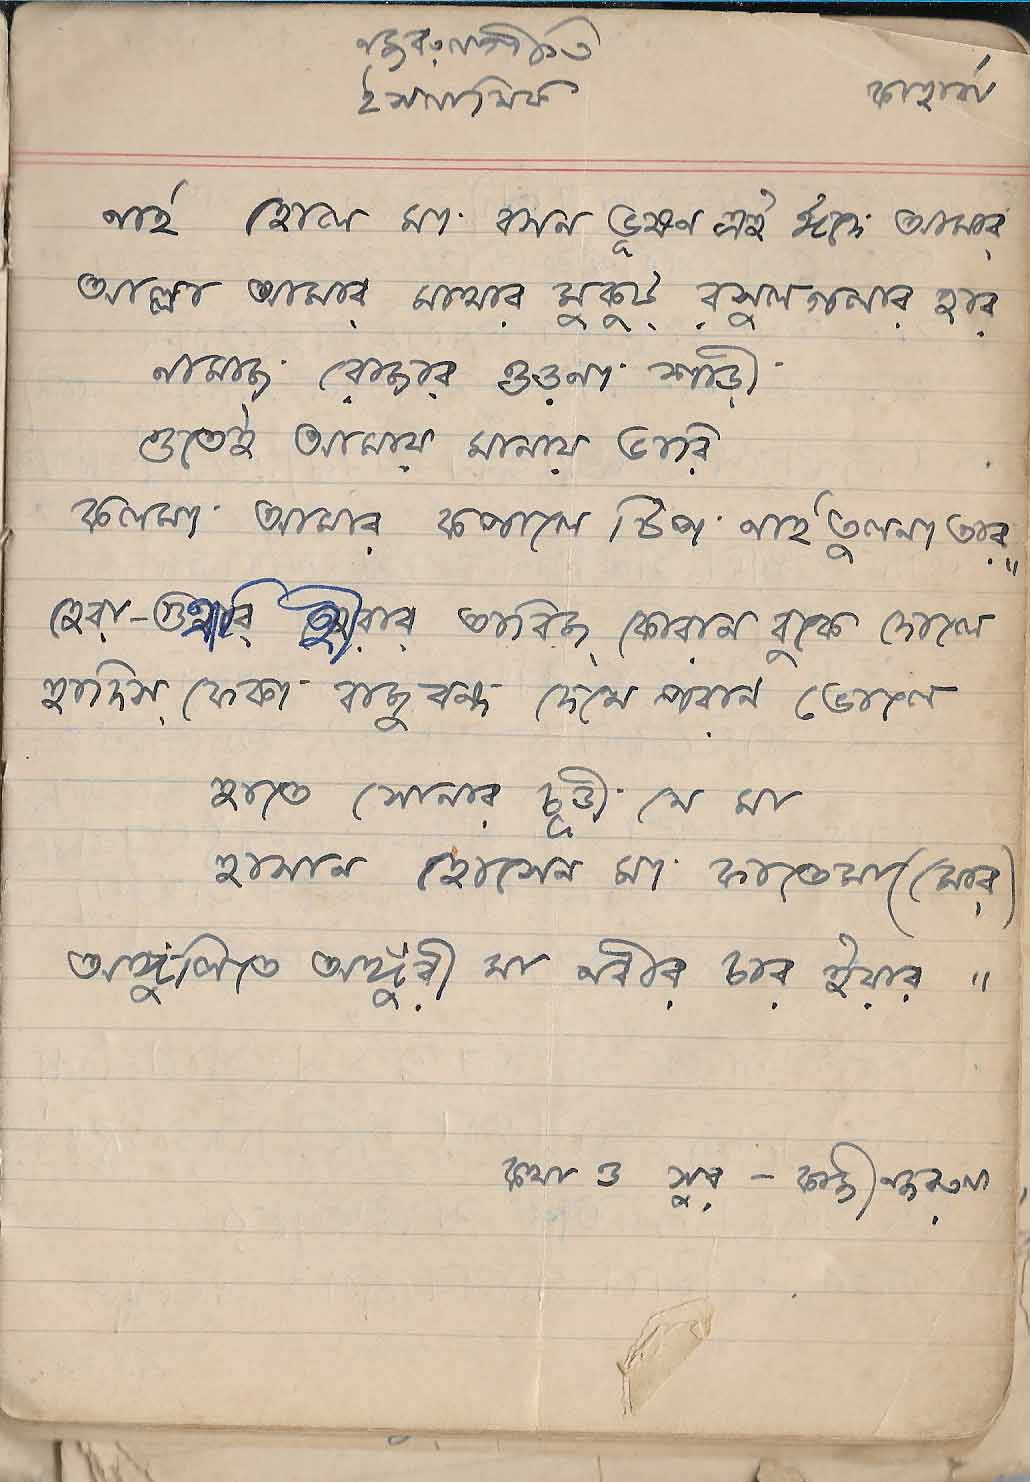 নজরুলগীতি
ইসলামিক কাহার্বা
নাই হোল মা বসন ভূষণ এই ঈদে আমার
আল্লা আমার মাথার মুকুট রসুল গলার হার
নামাজ রোজার ওড়না শাড়ী
ওতেই আমায় মানায় ভারি
কলমা আমার কপালে টিপ নাই তুলনা তার॥
হেরা-গুহারি হীরার তাবিজ কোরান বুকে দোলে
হাদিস ফেকা বাজুবন্দ দেখে পরান ভোলে
হাতে সোনার চূড়ী যে মা
হাসান হোসেন মা ফাতেমা (মোর)
আঙ্গুলিতে অঙ্গুরী মা নবীর চার ইয়ার ॥
কথা ও সুর - কাজী নজরুল